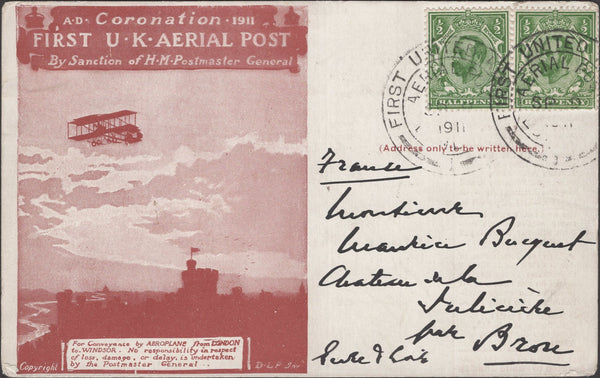 A·D· Coronation · 1911
FIRST U·K·AERIAL POST
By Sanction of H·M·Postmaster General
HALFPENNY
HALFPENNY
FIRST UNITED
AERIAL
1911
FIRST UNITED
AERIAL
(Address only to be written here.)
France
Monsieur
Maurice Bucquet
Chateau de la
par Brou
For Conveyance by AEROPLANE from LONDON
to WINDSOR. No responsibility in respect
of loss, damage, or delay, is undertaken
by the Postmaster General.
Copyright